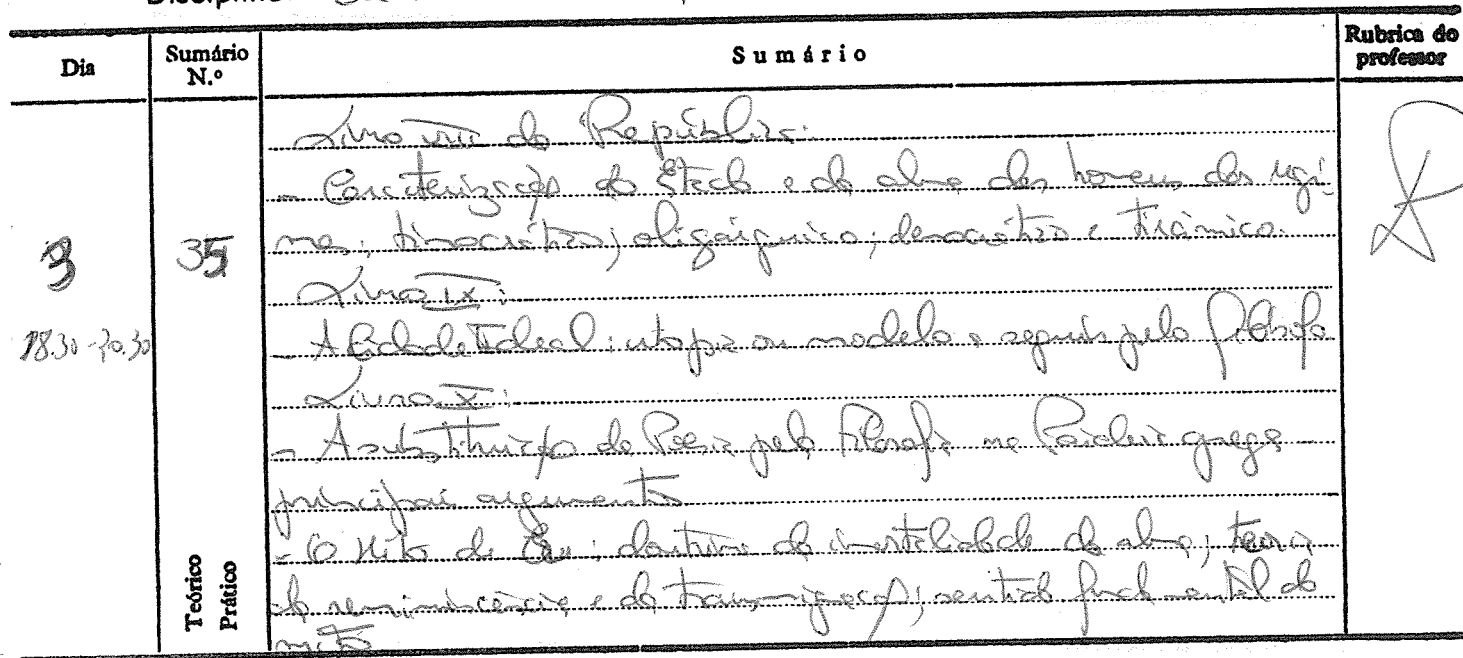 Dia
Sumário N.º
Sumário
Rubrica do professor
3
18.30-20.30
35
Teórico
Prático
Livro VIII da República:
- Caracterização do Estado e da alma dos homens dos regi-
mes: timocrático; oligárquico; democrático e tirânico.
Livro IX:
- A Cidade Ideal: utopia ou modelo a seguir pelo filósofo
Livro X:
- A substituição da Poesia pela Filosofia na Paideia grega
principais argumentos
- O Mito de Er: doutrina da imortalidade da alma; teoria
da reminiscência e da transmigração; sentido fundamental do
mito